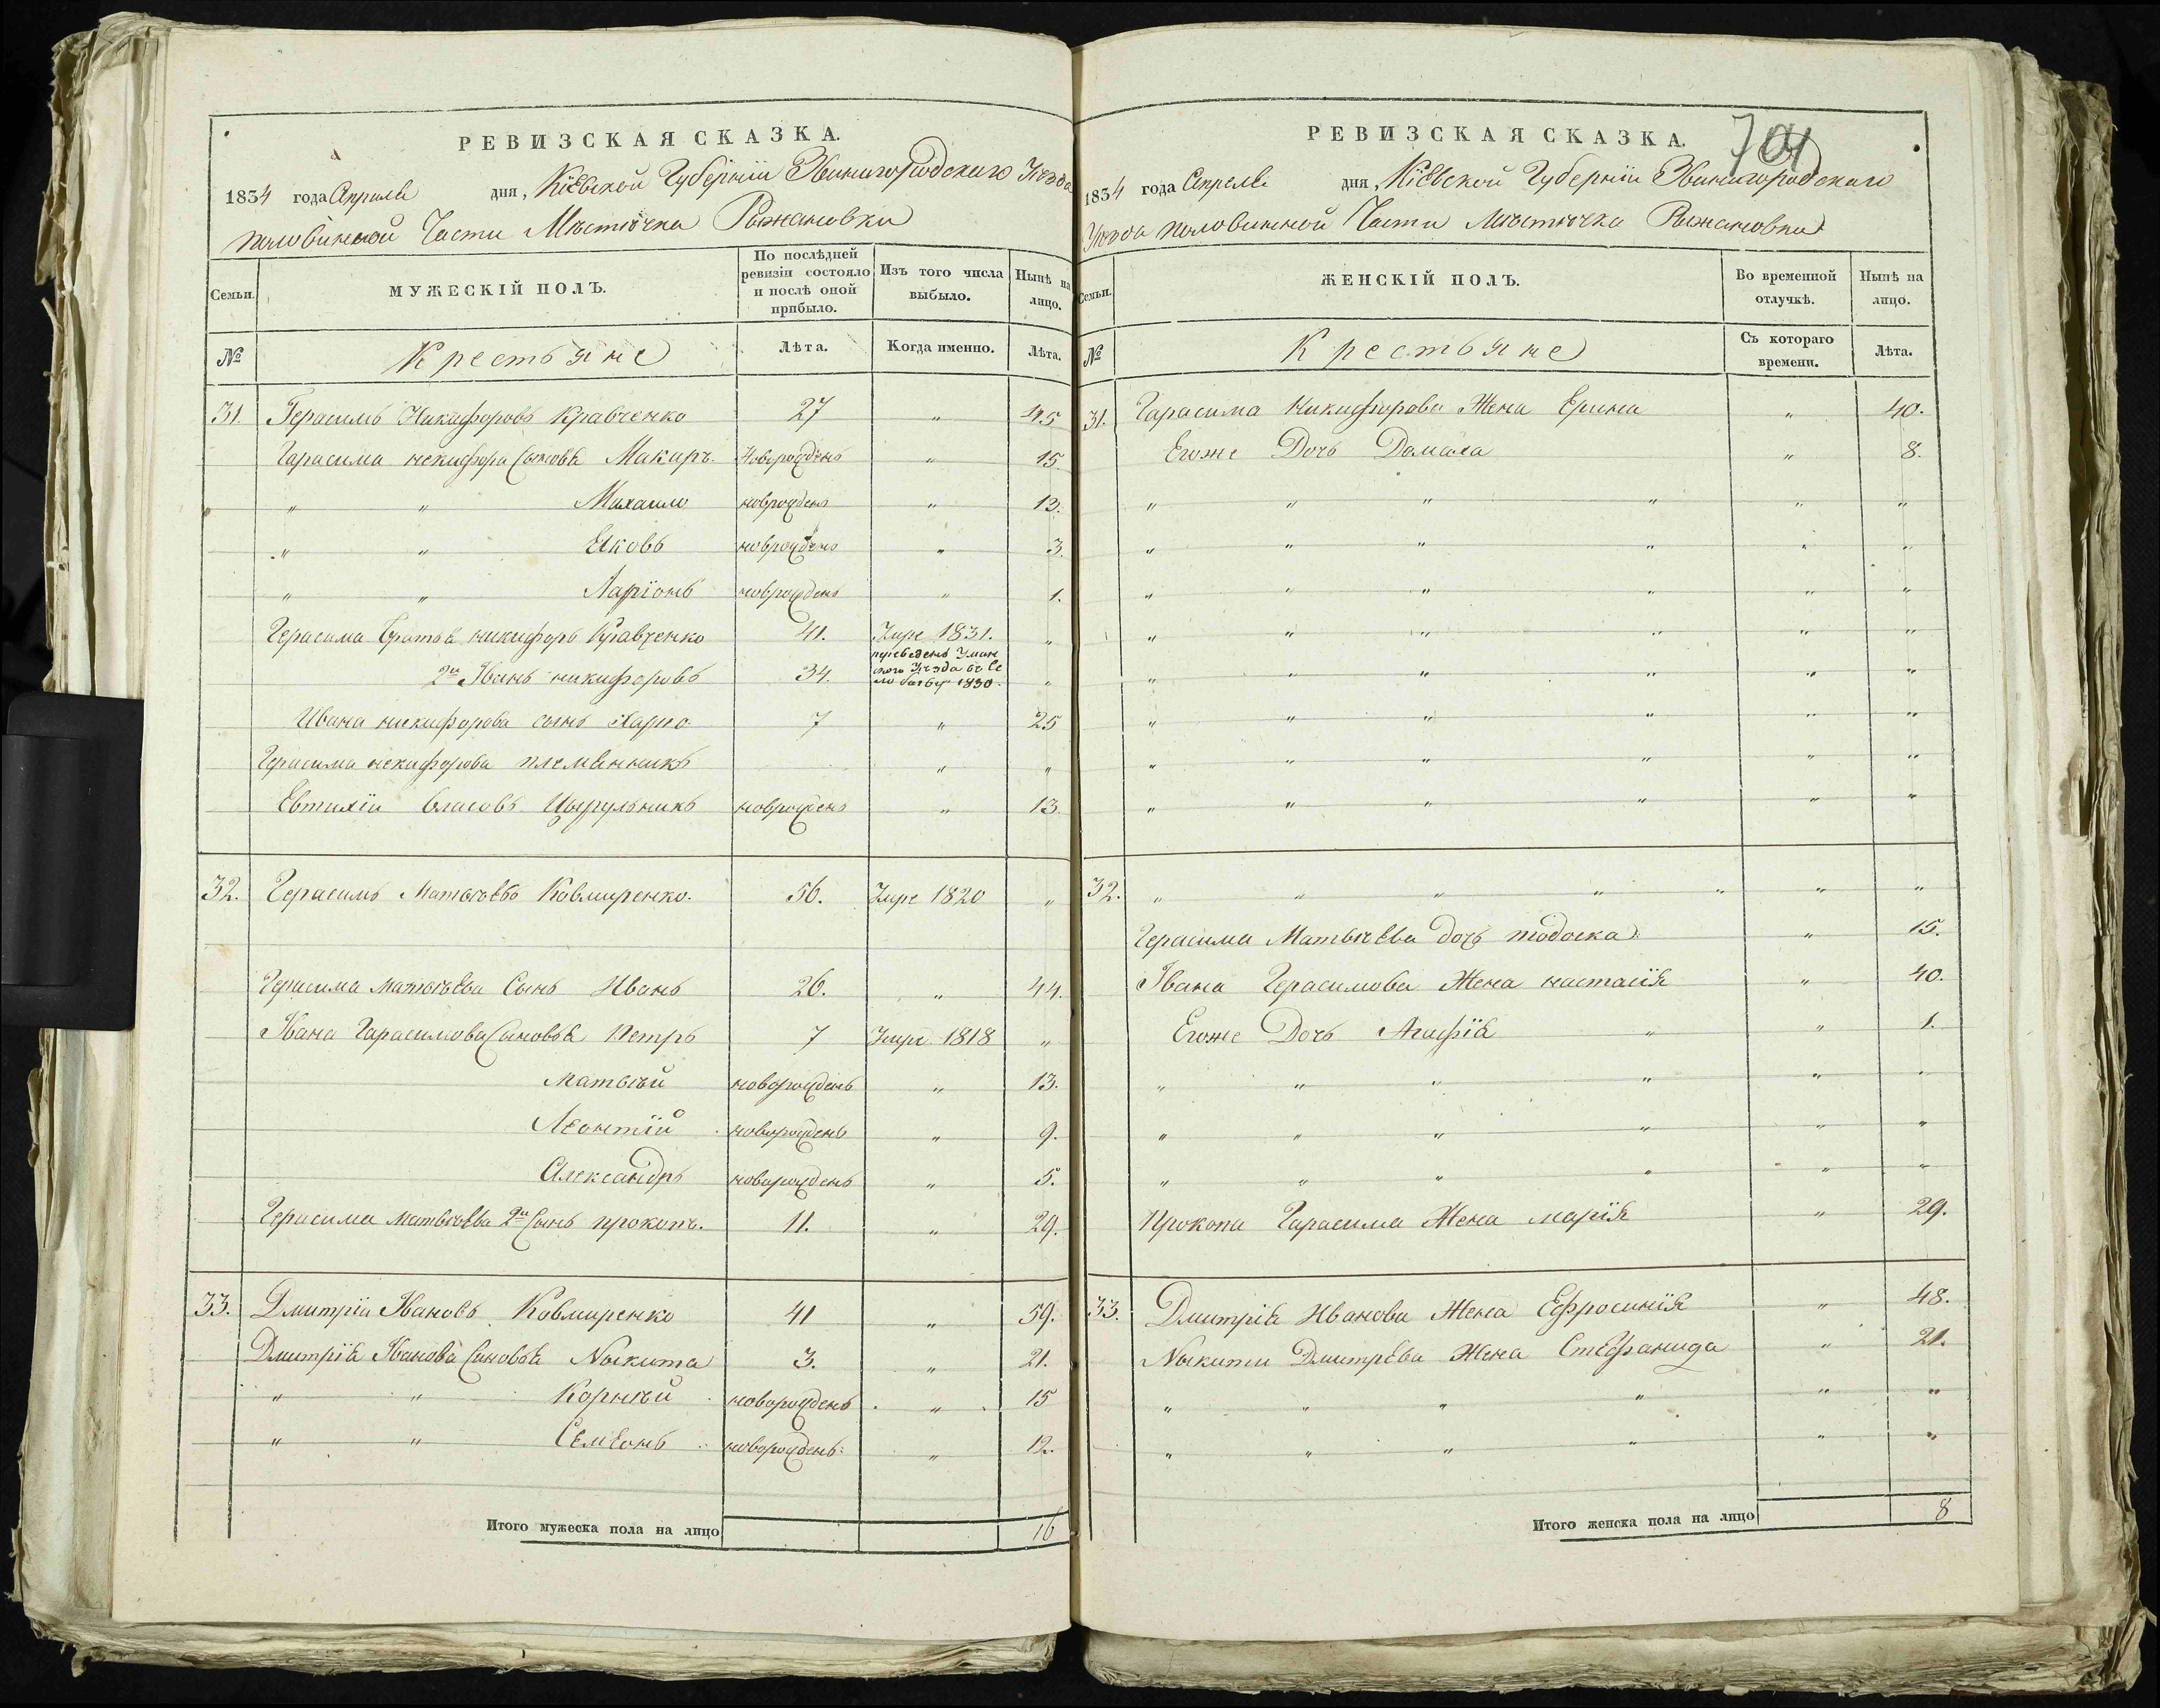 РЕВИЗСКАЯ СКАЗКА.
1834 года Апреля дня, Кіевской Губерніи Звинигородскаго Уезда
половинной Части Мѣстечка Рыжановки
Семьи. МУЖЕСКІЙ ПОЛЪ. По послѣдней ревизіи состояло и послѣ оной прибыло. Изъ того числа выбыло. Нынѣ на лицо.
№ Крестьяне Лѣта. Когда именно. Лѣта.
31. Герасимъ Никифоровъ Кравченко 27 " 45
Гарасима некифора Сыновья Макаръ. Новорожденъ " 15.
" " Михаило новрожден " 13.
" " Яковъ новрожденъ " 3.
" " Ларіонъ новрожденъ " 1.
Герасима Братья никифоръ Кравченко 41. Умре 1831. "
2й Іванъ никифоровъ 34. переведенъ Уман
ского Уезда въ Се
ло 1830. "
Ивана никифорова сынъ Карпо 7 " 25
Герасима некифорова племянникъ " "
Евтихіи Власовъ Цырульникъ новрожденъ " 13.
32. Герасимъ Матвѣевъ Ковмиренко. 56. Умре 1820 "
Герасима Матвѣева Сынъ Иванъ 26. " 44.
Івана Гарасимова Сыновья Петръ 7 Умре 1818 "
Матвѣй новорожденъ " 13.
Леонтій новорожденъ " 9.
Александръ новорожденъ " 5.
Герасима Матвѣева 2й Сынъ прокопъ. 11. " 29.
33. Дмитріи Івановъ Ковмиренко 41 " 59.
Дмитрія Іванова Сыновья Ныкита 3. " 21.
" " Корнѣй новорожденъ " 15
" " Семеонъ новорожденъ " 12.
Итого мужеска пола на лицо 16
РЕВИЗСКАЯ СКАЗКА. 701
1834 года Апреля дня, Кіевской Губерніи Звинигородскаго
Уезда половинной Части Мѣстечка Рыжановки
Семьи. ЖЕНСКІЙ ПОЛЪ. Во временной отлучкѣ. Нынѣ на лицо.
№ Крестьяне Съ котораго времени. Лѣта.
31. Гарасима Никифорова Жена Ерина " 40.
Егоже Дочь Домаха " 8.
" " " " " "
" " " " " "
" " " " " "
" " " " " "
" " " " " "
" " " " " "
" " " " " "
" " " " " "
32. " " " " " " "
Герасима Матвѣева дочь тодоска " 15.
Івана Герасимова Жена настасія " 40.
Егоже Дочь Агафія " " 1.
" " " " " "
" " " " " "
" " " " " "
Прокопа Гарасима Жена марія " 29.
33. Дмитрія Иванова Жена Ефросинія " 48.
Ныкити Дмитрева Жена Стефанида " 21.
" " " " " "
" " " " " "
Итого женска пола на лицо 8